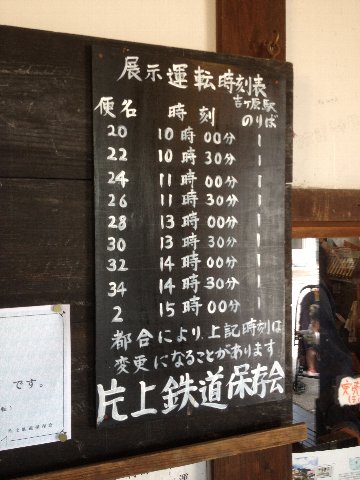 展示運転時刻表
吉ヶ原駅
便名 時刻 のりば
20 10時00分 1
22 10時30分 1
24 11時00分 1
26 11時30分 1
28 13時00分 1
30 13時30分 1
32 14時00分 1
34 14時30分 1
2 15時00分 1
都合により、上記時刻は
変更になることがあります
片上鉄道保存会
です。